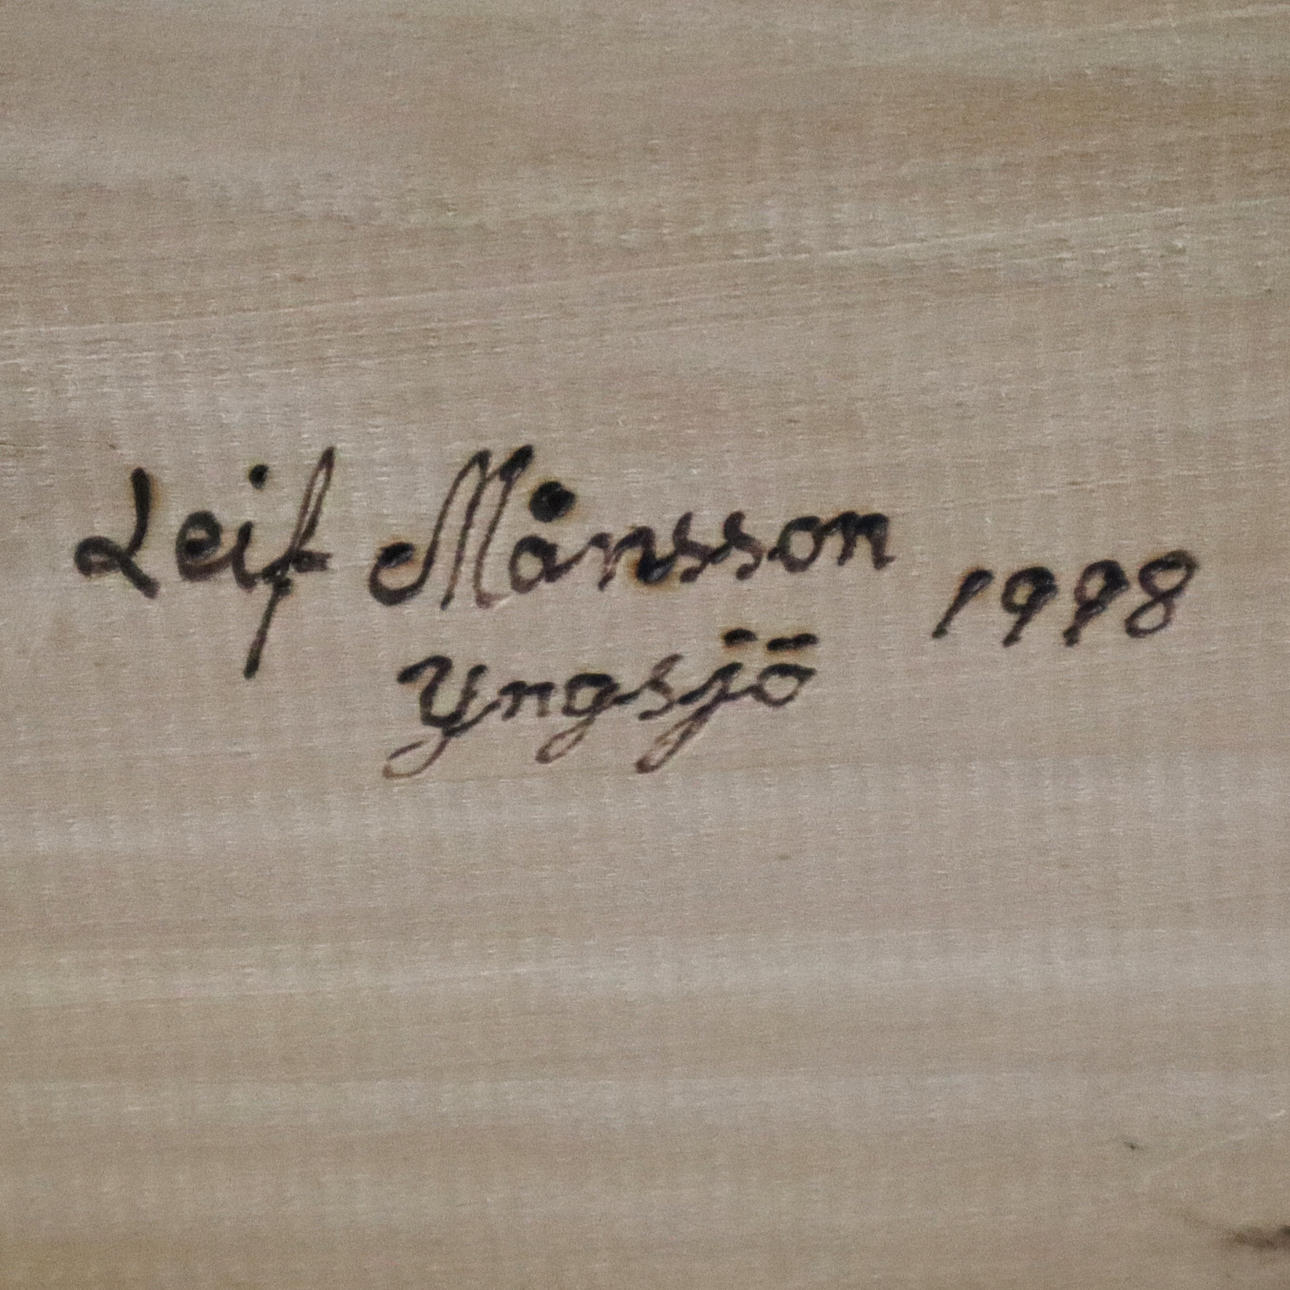 Leif Månsson 1998
Yngsjö